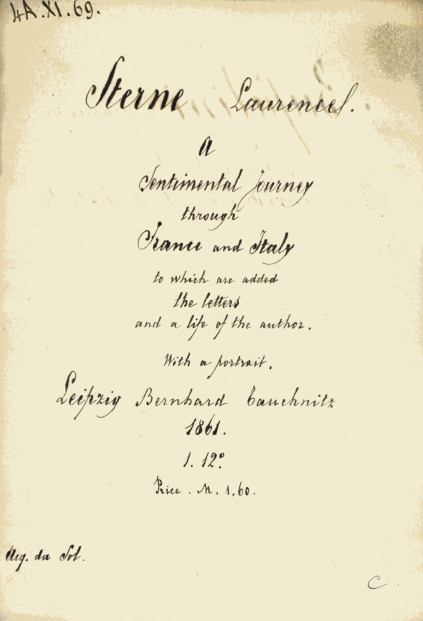 4A.XI.69.
Sterne Laurence.
A
Sentimental Journey
through
France and Italy
to which are added
the letters
and a life of the author.
With a portrait.
Leipzig Bernhard Tauchnitz
1861.
1. 12º
Price. M. 1,60.
du Sol.
C.